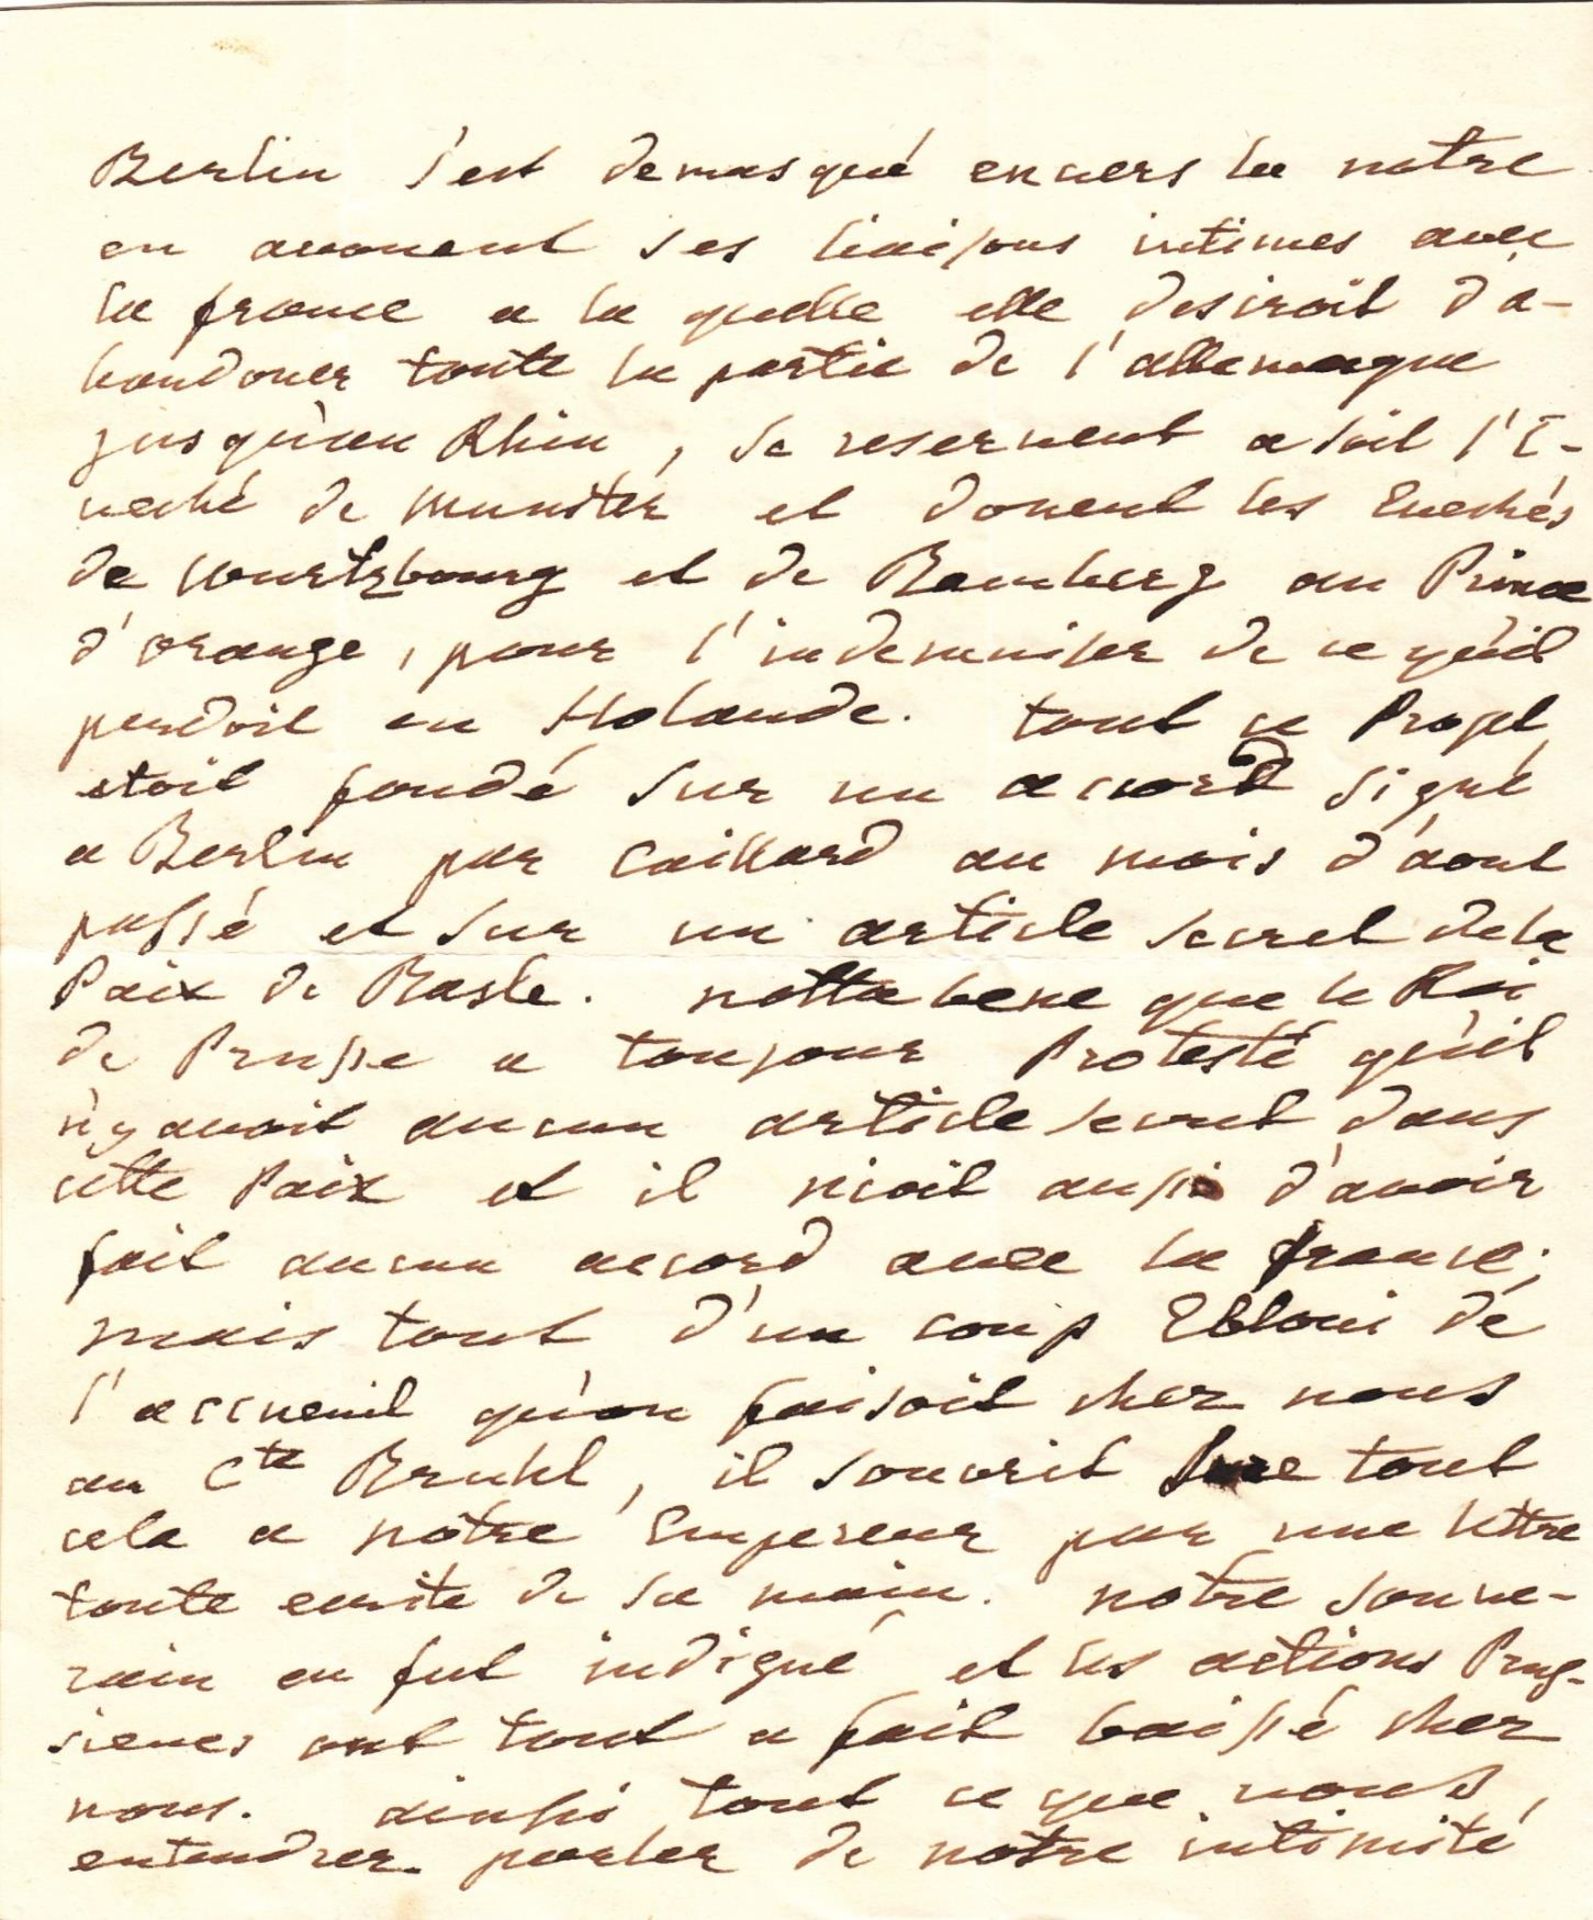 Berlin s'est demasqué envers la notre
en avouant ses liaisons intimes avec
la france a la quelle elle desiroit d'a-
bandoner toute la partie de l'allemagne
jusqu'au Rhin, se reservent a soit l'E-
veché de Munster et donent les Evechés
de Wurtzbourg et de Bamberg au Prince
d'orange, pour l'indemniser de ce qu'il
perdoit en Holande. tout ce Projet
etoit fondé sur un accord signé
a Berlin par Caillard au mois d'aout
passé et sur un article secret de la
Paix de Basle. notta bene que le Roi
de Prusse a toujour Protesté qu'il
n'y avoit aucun article secret dans
cette Paix et il nioit aussi d'avoir
fait aucun accord avec la france;
mais tout d'un coup Ebloui de
l'accueuil qu'on faisoit chez nous
au Cte Bruhl, il s'ouvrit sure tout
cela a notre Empereur par une lettre
toute ecrite de sa main. notre souve-
rain en fut indigné et les actions Prus-
sienes ont tout a fait baissé chez
nous. ainsi tout ce que vous
entendrez parler de notre intimité